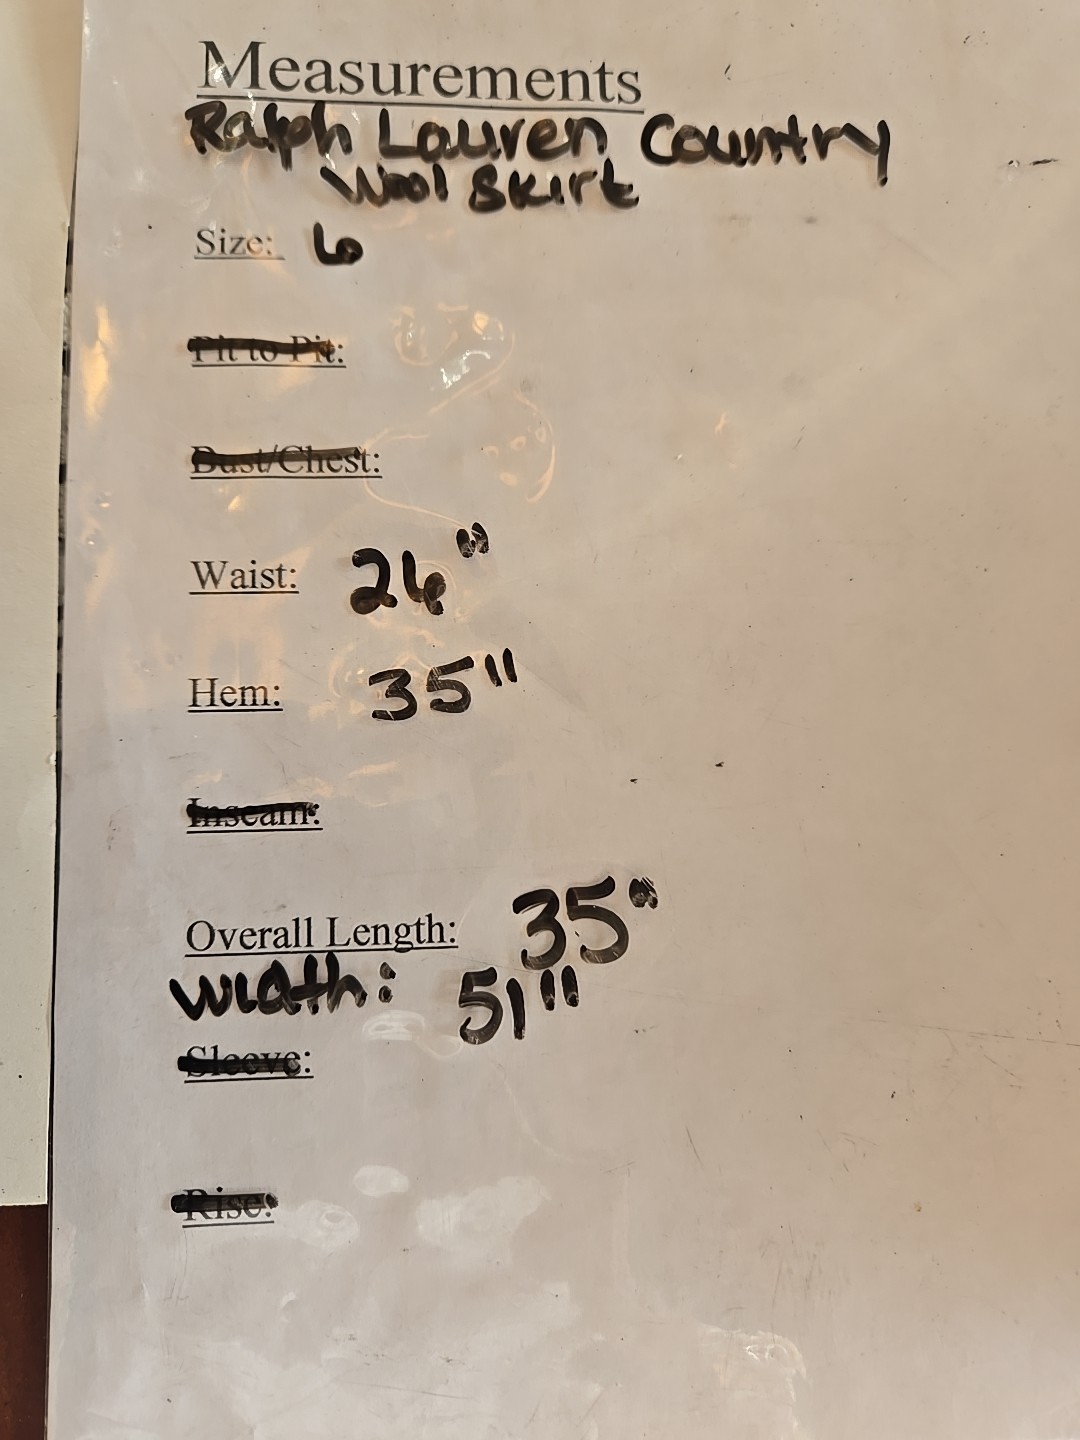 Measurements
Ralph Lauren Country
Wool Skirt
Size: 6
Pit to Pit:
Bust/Chest:
Waist: 26"
Hem: 35"
Inseam:
Overall Length: 35"
Width: 51"
Sleeve:
Rise: